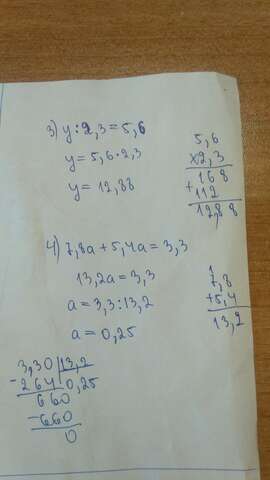 3) y:2,3=5,6
y=5,6·2,3
y=12,88
5,6
x2,3
168
+112
12,88
4) 7,8a+5,4a=3,3
13,2a=3,3
a=3,3:13,2
a=0,25
1
7,8
+5,4
13,2
3,30 13,2
-264 0,25
660
-660
0